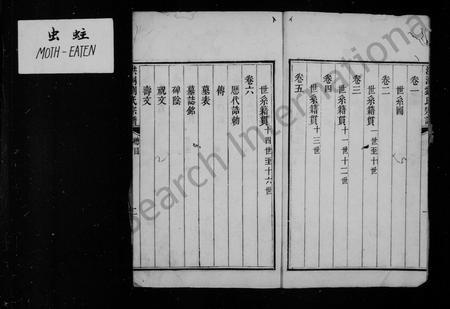 虫蛀
MOTH-EATEN
卷一
世系圖
卷二
世系籍貫一世至十世
卷三
世系籍貫十一世十二世
卷四
世系籍貫十三世
卷五
世系籍貫十四世至十六世
卷六
歷代誥勅
傳
墓表
墓誌銘
碑陰
祝文
壽文
Search International